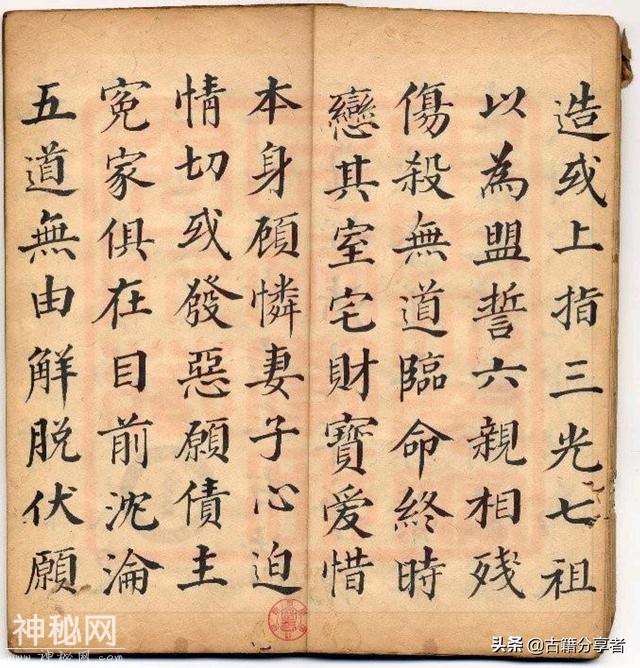 造或上指三光七祖
以為盟誓六親相残
傷殺無道臨命終時
戀其室宅財寶爱惜
本身顧憐妻子心迫
情切或發惡願債主
冤家俱在目前沈淪
五道無由解脱伏願
神秘网
WWW.SHENMIW.COM 神秘网
头条 @古籍分享者